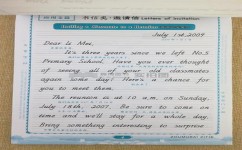 书信类·邀请信 Letter of Invitation
Inviting a Classmate to a Reunion
July 1st, 2009
Dear Li Mei,
It's three years since we left No.5
Primary School. Have you ever thought
of seeing all of your old classmates
again some day? Here's a chance for
you to meet them.
The reunion is at 10 a.m. on Sunday,
July 18th, 2009. Be sure to come on
time and we'll stay for a whole day.
Bring something interesting to surprise